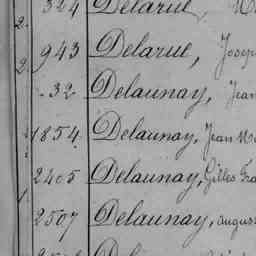 2. 324 Delarue, 
2 943 Delarue, Josep
32 Delaunay, Jean
1854 Delaunay, Jean M
2405 Delaunay, Gilles Fra
1 2507 Delaunay, augus